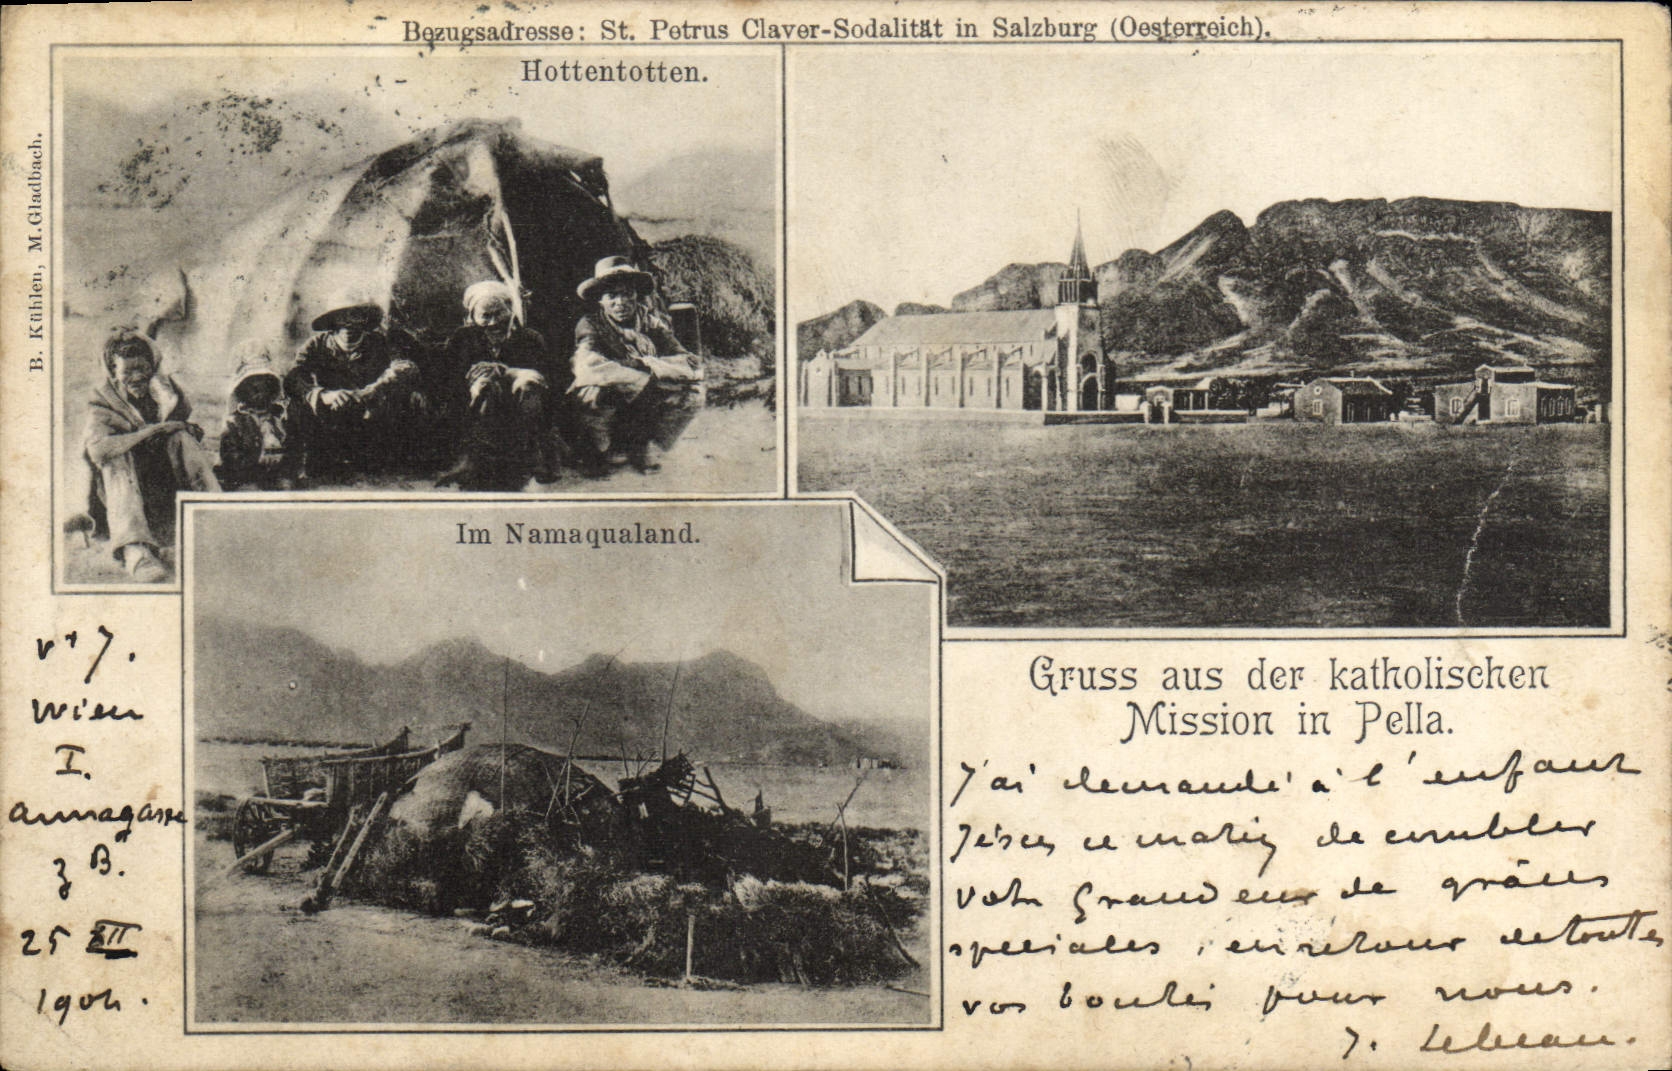 Bezugsadresse: St. Petrus Claver-Sodalität in Salzburg (Oesterreich).
Hottentotten.
B. Kühlen, M.Gladbach.
Im Namaqualand.
Gruss aus der katholischen
Mission in Pella.
J'ai demandé à l'enfant
Jésus ce matin de combler
votre Grandeur de grâces
spéciales, en retour de toutes
vos bontés pour nous.
J. Lebeau.
Wien
I.
Annagasse
25 XII
1904.